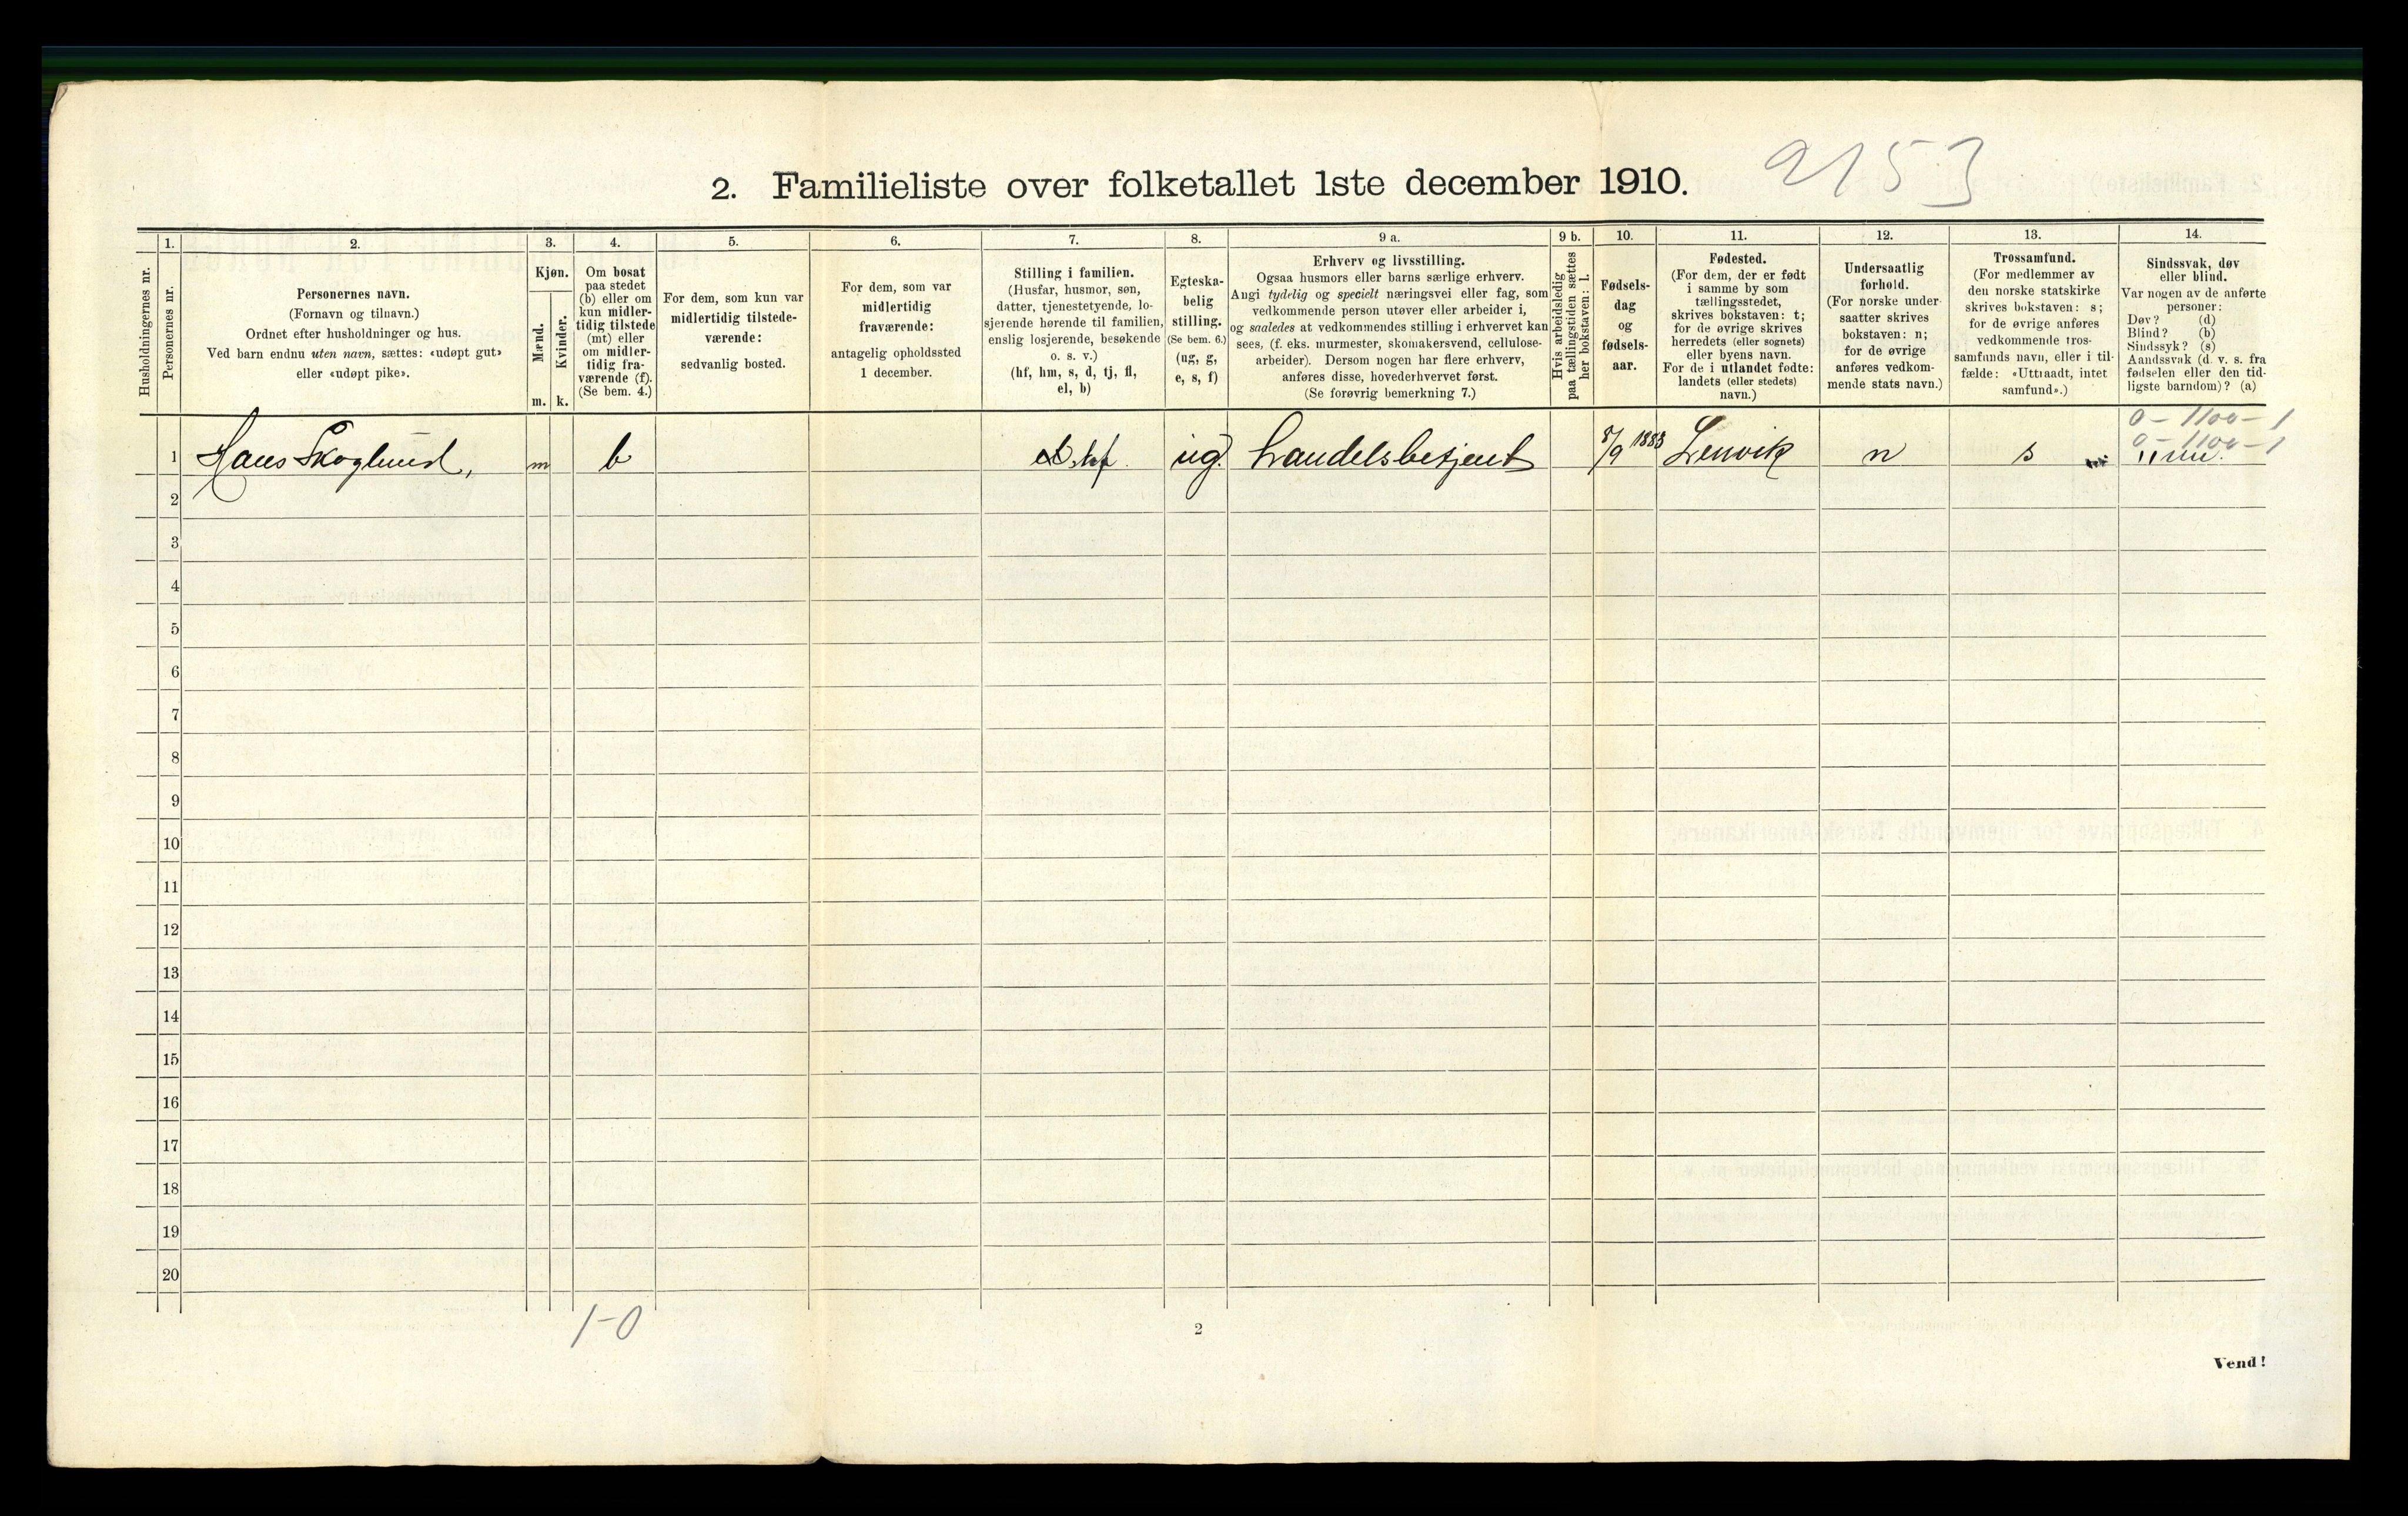 2. Familieliste over folketallet 1ste december 1910.
2153
Husholdningernes nr.
1.
Personernes nr.
2.
Personernes navn.
(Fornavn og tilnavn.)
Ordnet efter husholdninger og hus.
Ved barn endnu uten navn, sættes: «udøpt gut»
eller «udøpt pike».
3.
Kjøn.
Mænd.
Kvinder.
m. k.
4.
Om bosat
paa stedet
(b) eller om
kun midler-
tidig tilstede
(mt) eller
om midler-
tidig fra-
værende (f).
(Se bem. 4.)
5.
For dem, som kun var
midlertidig tilstede-
værende:
sedvanlig bosted.
6.
For dem, som var
midlertidig
fraværende:
antagelig opholdssted
1 december.
7.
Stilling i familien.
(Husfar, husmor, søn,
datter, tjenestetyende, lo-
sjerende hørende til familien,
enslig losjerende, besøkende
o. s. v.)
(hf, hm, s, d, tj, fl,
el, b)
8.
Egteska-
belig
stilling.
(Se bem. 6.)
(ug, g,
e, s, f)
9 a.
Erhverv og livsstilling.
Ogsaa husmors eller barns særlige erhverv.
Angi tydelig og specielt næringsvei eller fag, som
vedkommende person utøver eller arbeider i,
og saaledes at vedkommendes stilling i erhvervet kan
sees, (f. eks. murmester, skomakersvend, cellulose-
arbeider). Dersom nogen har flere erhverv,
anføres disse, hovederhvervet først.
(Se forøvrig bemerkning 7.)
9 b.
Hvis arbeidsledig
paa tællingstiden sættes
her bokstaven: l.
10.
Fødsels-
dag
og
fødsels-
aar.
11.
Fødested.
(For dem, der er født
i samme by som
tællingsstedet,
skrives bokstaven: t;
for de øvrige skrives
herredets (eller sognets)
eller byens navn.
For de i utlandet fødte:
landets (eller stedets)
navn.)
12.
Undersaatlig
forhold.
(For norske under-
saatter skrives
bokstaven: n;
for de øvrige
anføres vedkom-
mende stats navn.)
13.
Trossamfund.
(For medlemmer av
den norske statskirke
skrives bokstaven: s;
for de øvrige anføres
vedkommende tros-
samfunds navn, eller i til-
fælde: «Uttraadt, intet
samfund».)
14.
Sindssvak, døv
eller blind.
Var nogen av de anførte
personer:
Døv? (d)
Blind? (b)
Sindssyk? (s)
Aandssvak (d. v. s. fra
fødselen eller den tid-
ligste barndom)? (a)
0 - 1100 - 1
0 - 1100 - 1
1 Hans Skoglund, m b hf. ug. handelsbetjent 8/9 1883 Lenvik n s
2
3
4
5
6
7
8
9
10
11
12
13
14
15
16
17
18
19
20
1-0
2
Vend!